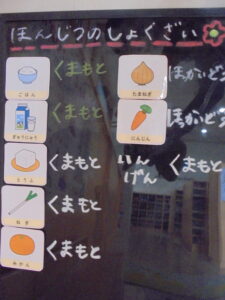 ほんじつのしょくざい
ごはん くまもと
ぎゅうにゅう くまもと
とうふ くまもと
ねぎ くまもと
みかん くまもと
たまねぎ ほっかいどう
にんじん ほっかいどう
いんげん くまもと